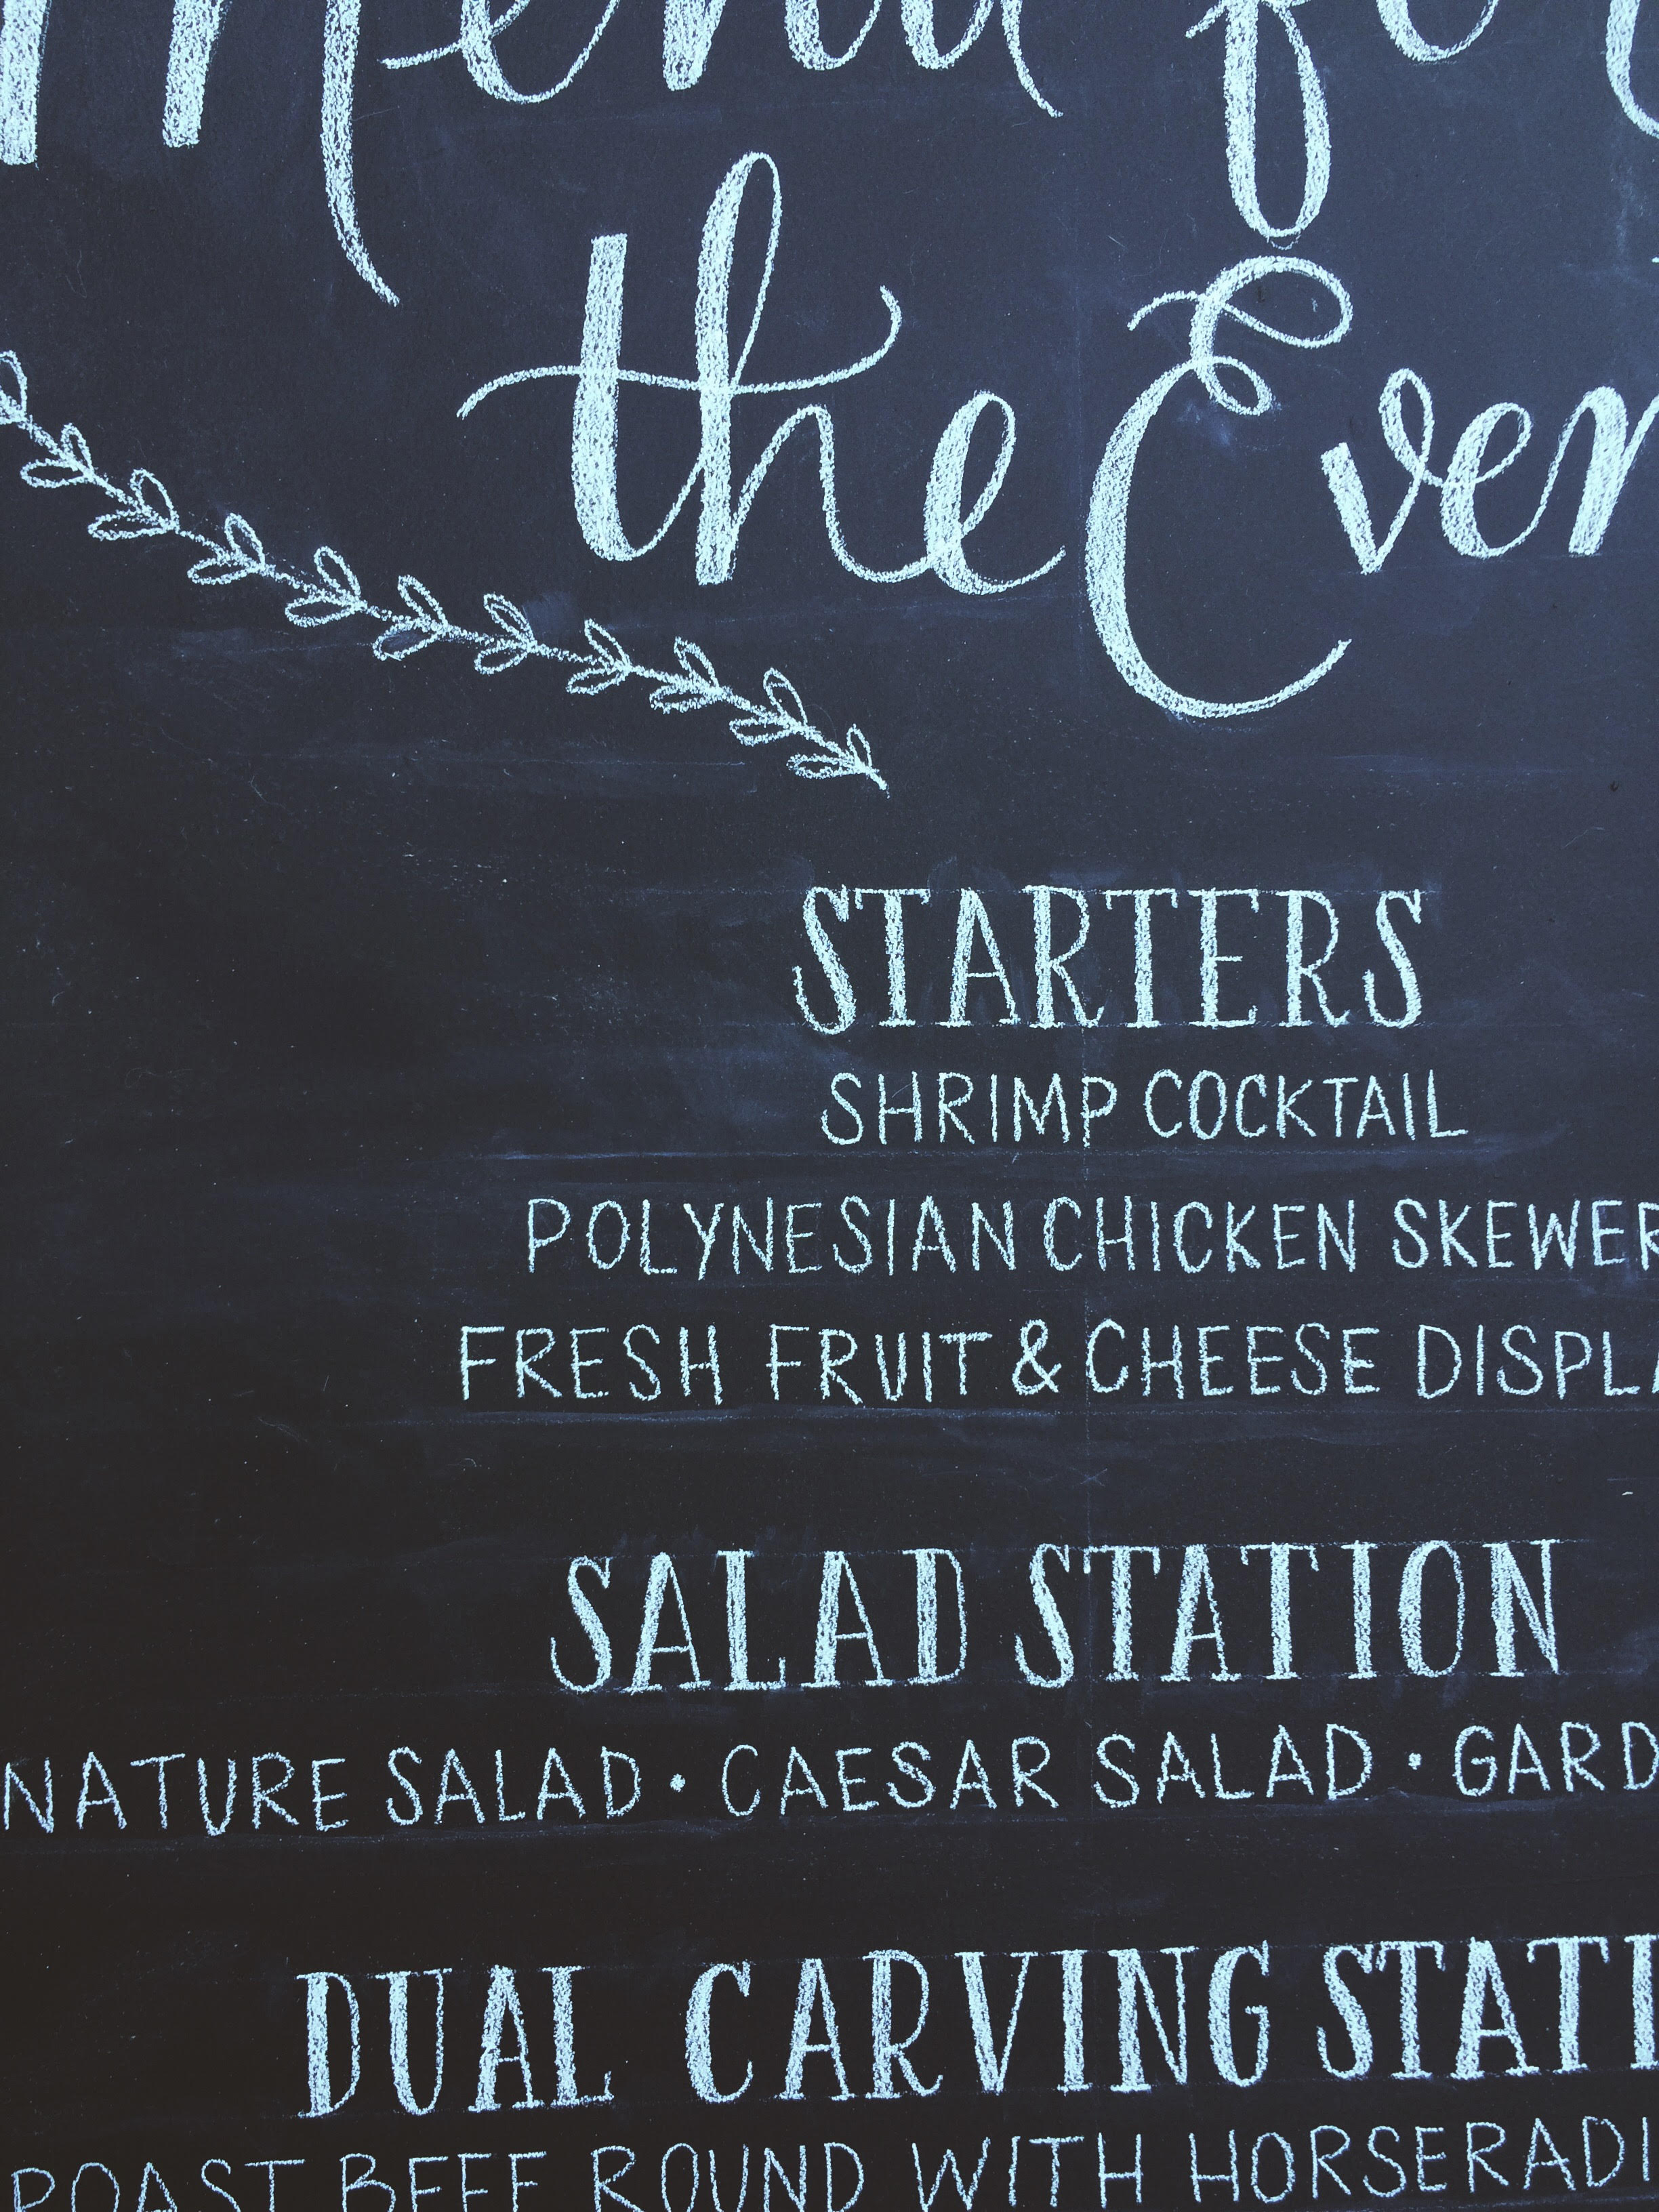 Menu for
the Even
STARTERS
SHRIMP COCKTAIL
POLYNESIAN CHICKEN SKEWER
FRESH FRUIT & CHEESE DISPLA
SALAD STATION
NATURE SALAD · CAESAR SALAD · GARD
DUAL CARVING STATI
ROAST BEEF ROUND WITH HORSERADI